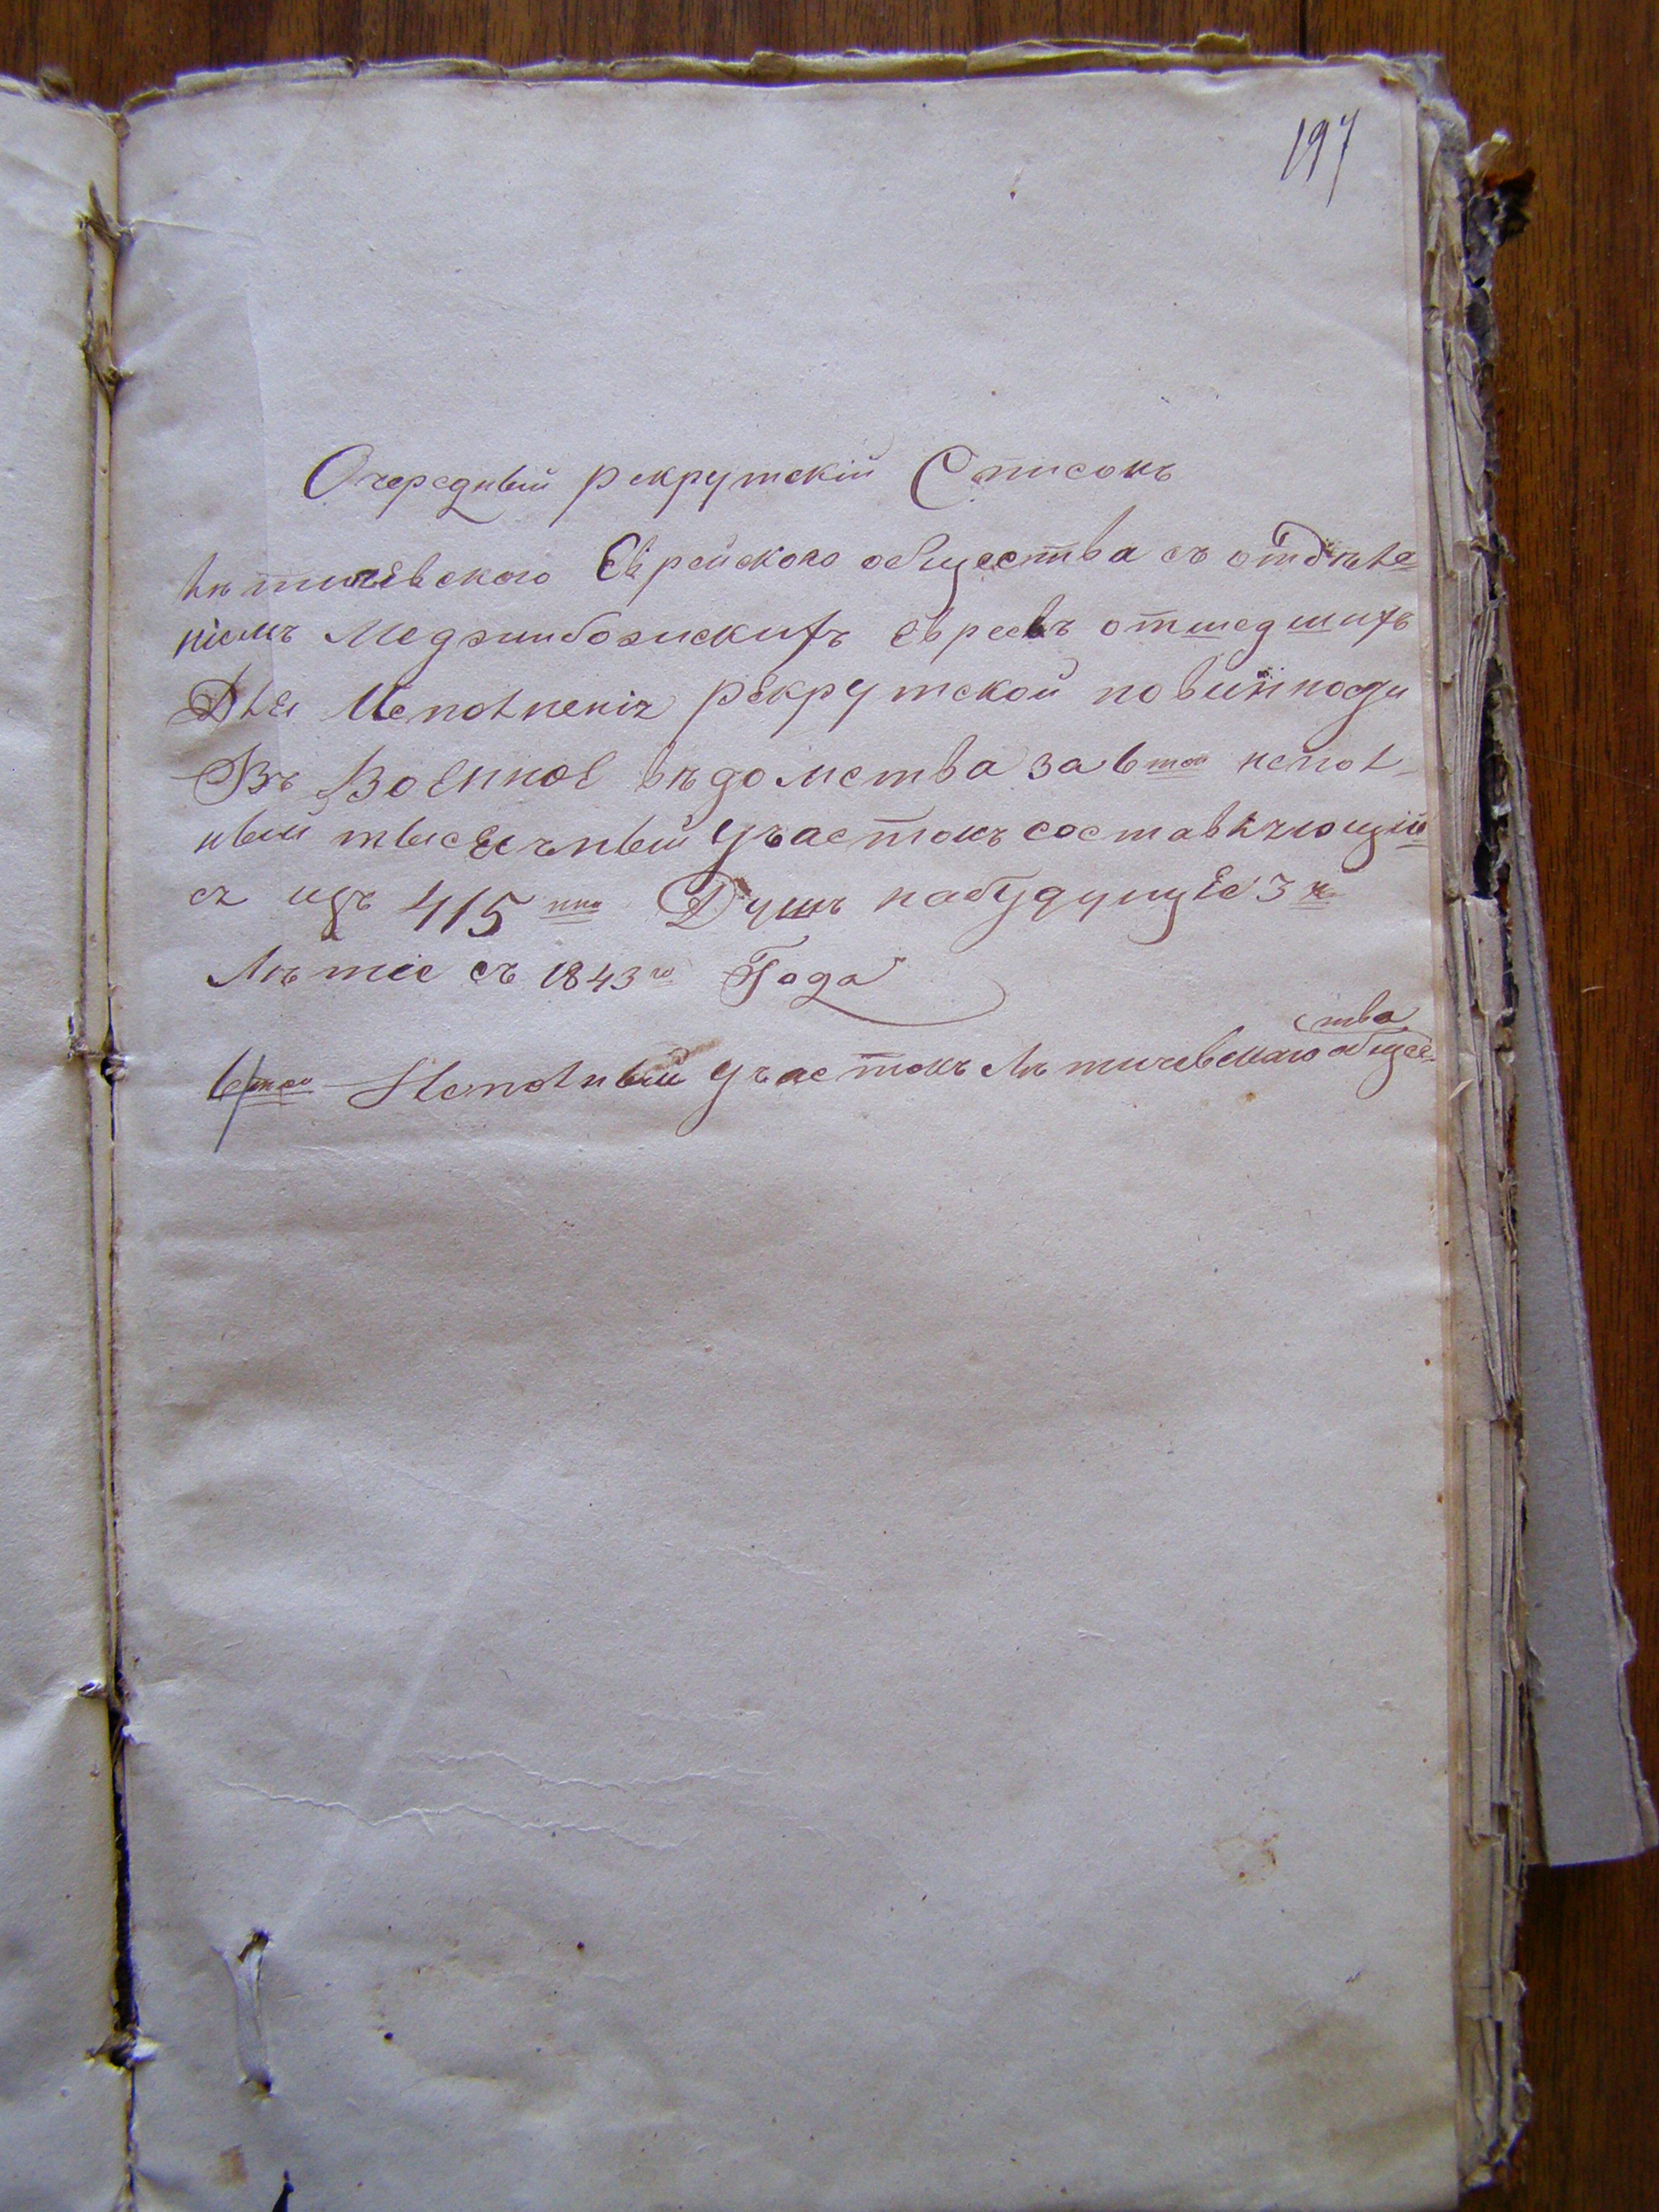 197
Очередный рекрутскій Списокъ
Лѣтичевского Еврейского общества съ отдѣле-
ніемъ Меджибожскихъ евреевъ отшедшихъ
Для Исполненія рекрутской повинности
Въ Военное вѣдомства за 6той непол-
ный тысячный участокъ составляющій
ся изъ 415 Душъ набудущее 3х
Лѣтіе съ 1843го Года
6той Неполный участокъ Лѣтичевскаго общес-
тва